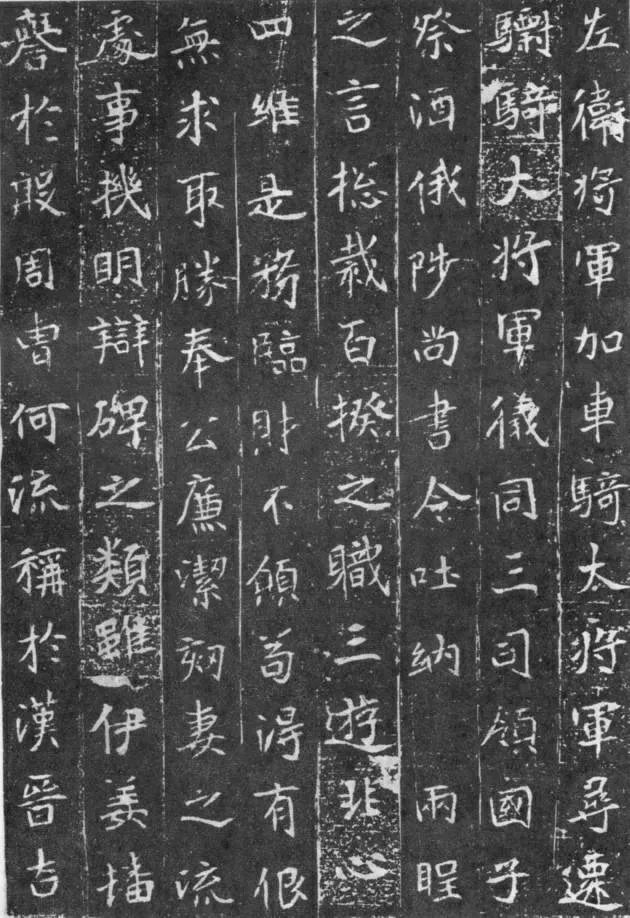 左衛將軍加車騎大將軍尋遷
驃騎大將軍儀同三司領國子
祭酒俄陟尚書令吐納　兩
之言惣裁百揆之職三遊非心
四維是務臨財不傾苟淂有恨
無求取勝奉公廉潔劾妻之流
處事機明辯碑之類雖伊姜播
譽於殷周曺何流稱於漢晉古